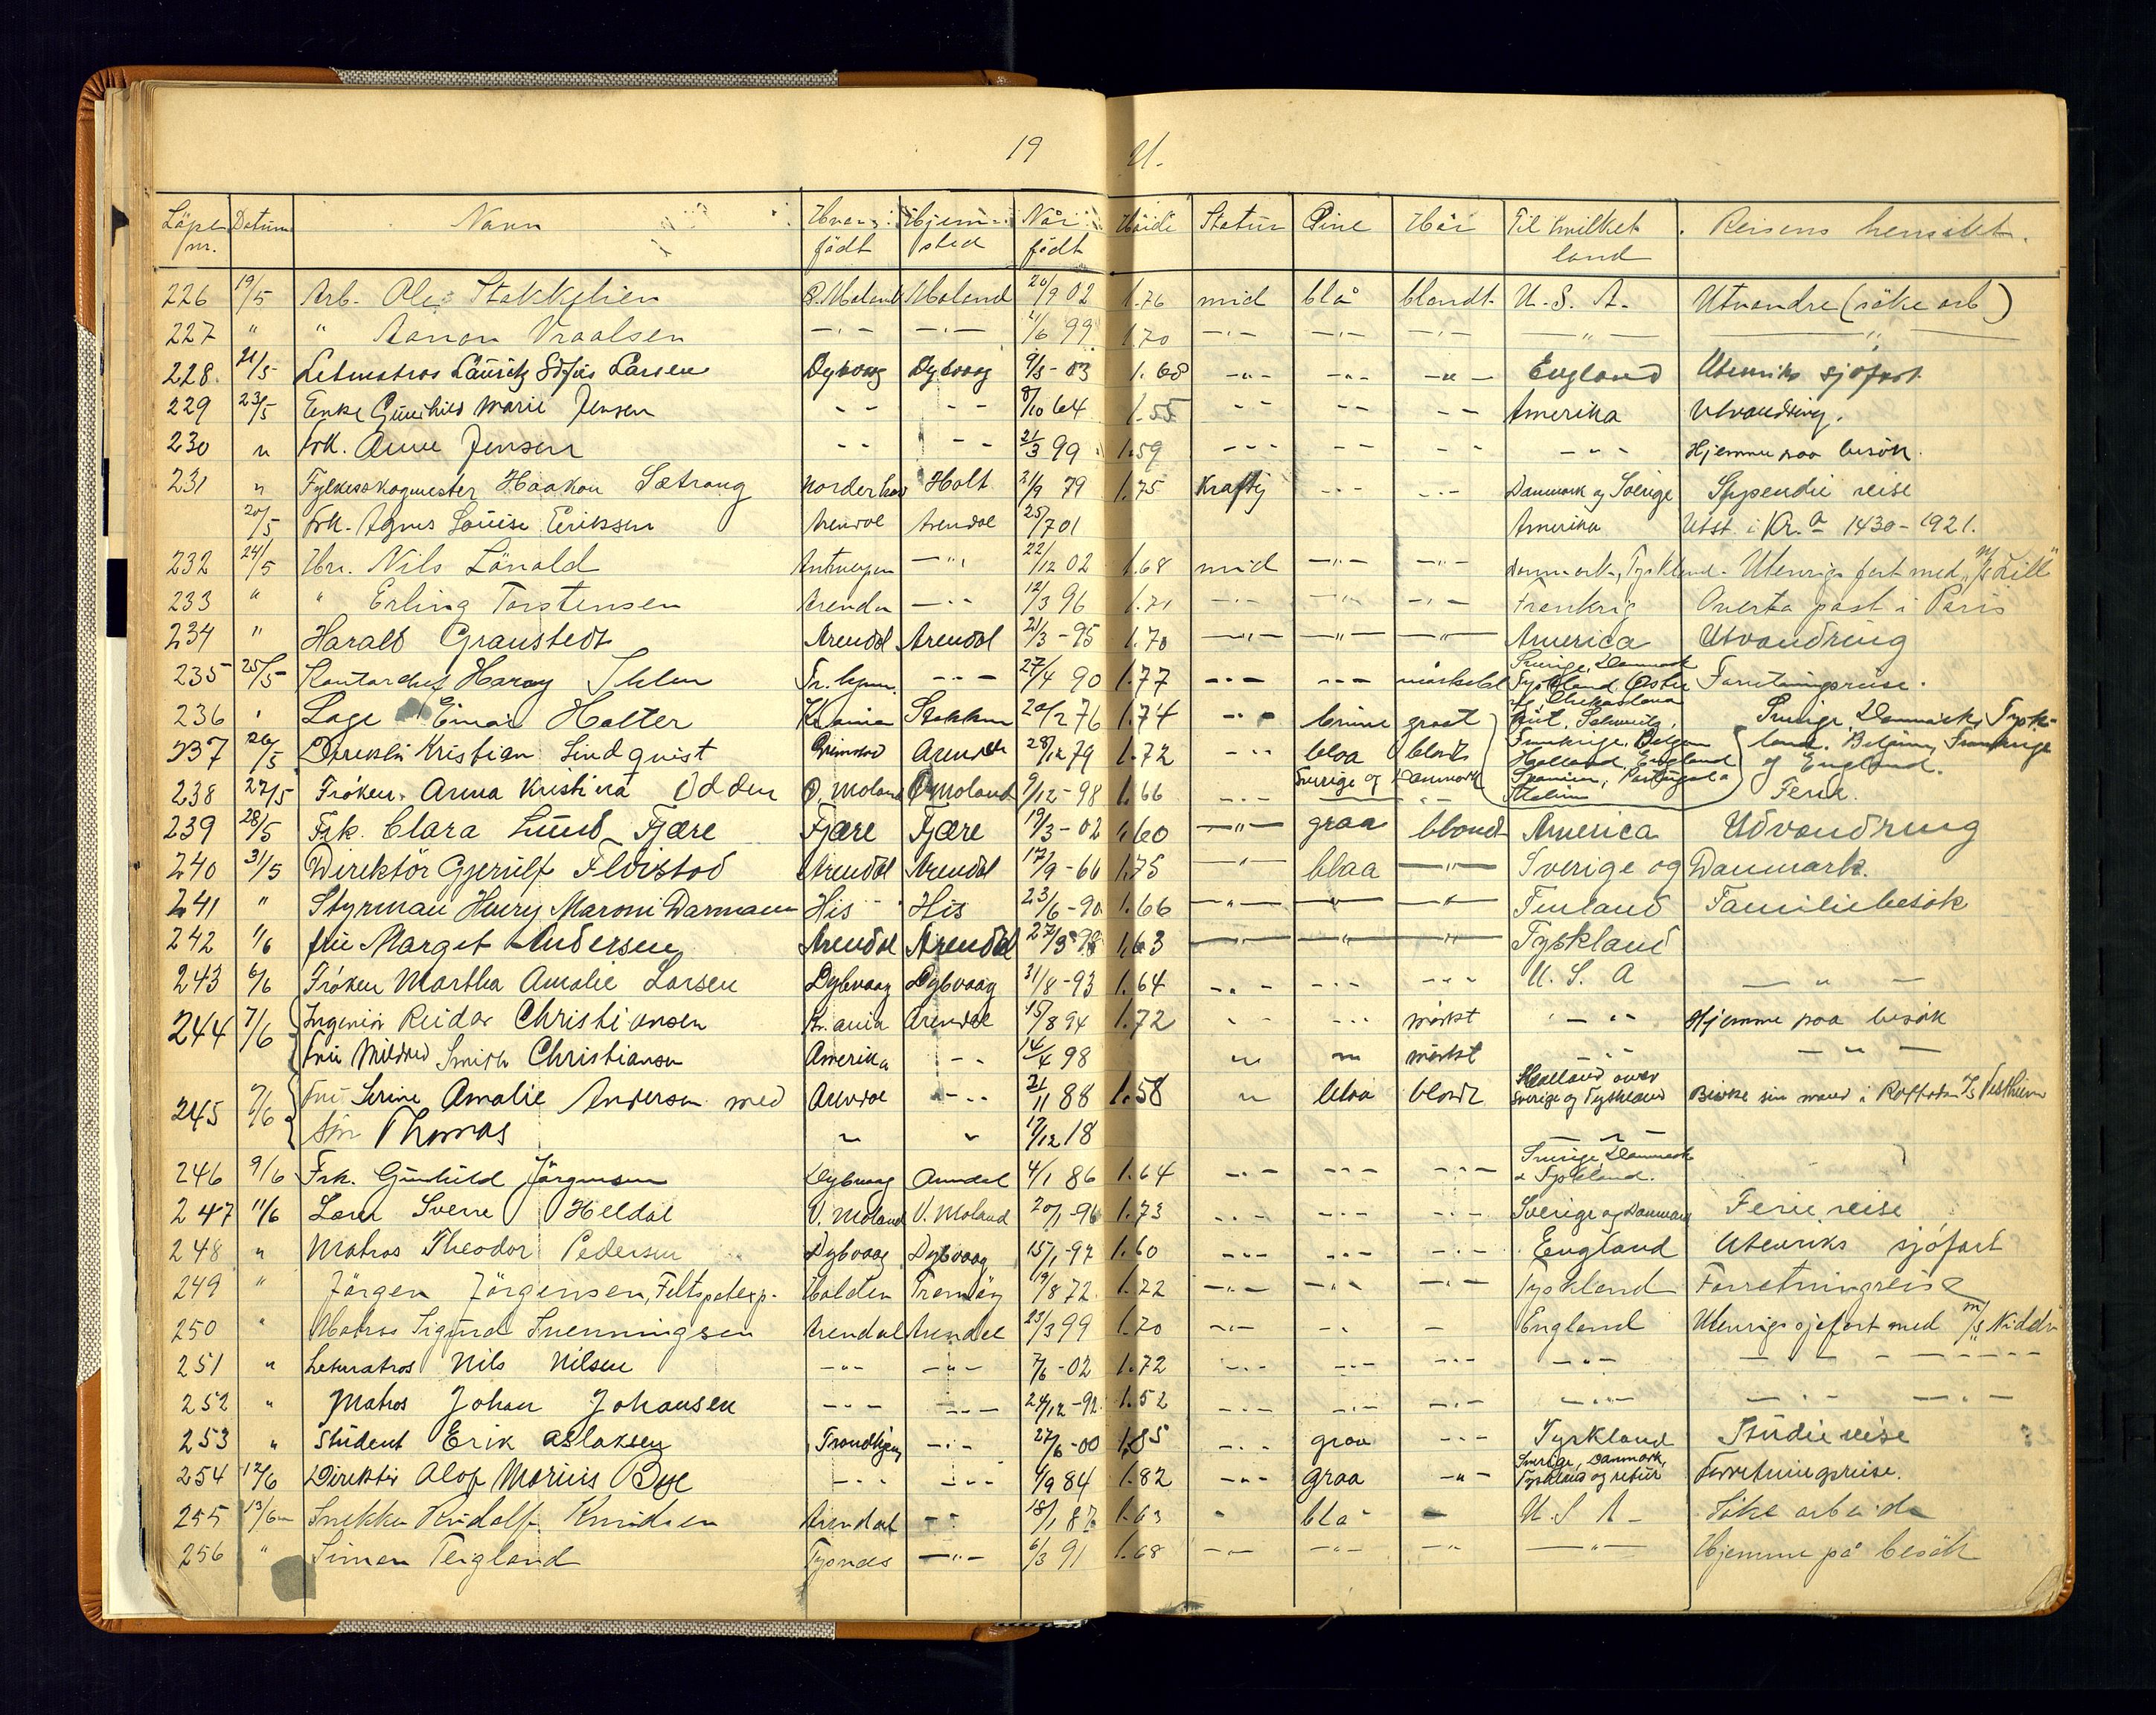 19 21.
Löpe nr. Datum Navn Hvor født Hjemsted Når født Høide Statur Øine Hår Til hvilket land Reisens hensikt.
226 19/5 Arb. Ole Stokkelien Ø. Moland Moland 20/9 02 1.76 mid blå blondt U.S.A. Utvandre (söke arb)
227 " " Aanon Vraalsen —"— —"— /6 99 1.70 —"— —"— —"— —"— —"—
228 21/5 Letmatros Lauritz Sofus Larsen Dybvaag Dybvaag 9/5-03 1.68 —"— —"— —"— England Utenriks sjøfart
229 23/5 Enke Gunhild Marie Jensen - - - - 8/10 64 1.55 - - - - - - Amerika Utvandring.
230 " Frk. Anne Jensen - - - - 21/3 99 1.59 - - - - - - - - - Hjemme paa besøk.
231 " Fylkesskogmester Haakon Sætrang Norderhov Holt 21/9 79 1.75 Kraftig - - - - - - Danmark og Sverige Stipendie reise
20/5 Frk. Agnes Louise Eriksen Arendal Arendal 25/7 01 Amerika Utst. i Kr.a 1430-1921.
232 24/5 Hr. Nils Lönold Antwerpen —"— 22/12 02 1.68 mid —"— —"— Danmark, Tyskland. Utenrigs fart med M/S "Lill"
233 " " Erling Torstensen Arendal —"— 12/3 96 1.71 —"— —"— —"— Frankrig Overta post i Paris
234 " Harald Granstedt Arendal Arendal 21/3-95 1.70 —"— —"— —"— America Utvandring
235 25/5 Kontorchef Harry Ihlen Fr. - - - 27/4 90 1.77 - - - - - - mörkebl. Sverige, Danmark Tyskland, Østerrike Forretningsreise.
236 " Lage Einar Holter Kr.ania Stokken 20/2 76 1.74 - - - brune graat Schweitz,
237 26/5 Direktör Kristian Lindquist Grimstad Arendal 28/12 79 1.72 - - - blaa blondt Frankrige, Belgien Holland, England Spanien, Portugal Italien Sverige Danmark, Tyskland, Belgien, Frankrige og England.
238 27/5 Frøken Anna Kristina Odden Ø. Moland Ø Moland 9/12-98 1.66 - - - Sverige og Danmark Ferie.
239 28/5 Frk. Clara Lund Fjære Fjære Fjære 19/3-02 1,60 —"— graa blondt America Udvandring
240 31/5 Direktör Gjerulf Fløistad Arendal Arendal 17/9-66 1.75 —"— blaa —"— Sverige og Danmark.
241 " Styrman Henry Maroni Danmann His His 23/6-90 1.66 —"— —"— —"— Finland Familiebesök
242 1/6 fru Margit Andersen Arendal Arendal 27/3-98 1,63 —"— —"— —"— Tyskland
243 6/6 Frøken Martha Amalie Larsen Dybvaag Dybvaag 31/8-93 1.64 - - - - - - - - - U.S.A — " —
244 7/6 Ingeniör Reidar Christiansen Kr.ania Arendal 15/8 94 1.72 " - - - mörkt " — " Hjemme paa besøk
Fru Mildred Smith Christiansen Amerika - - 14/4 98 " " mörkt - - - — " —
245 7/6 Fru Serine Amalie Andersen med Arendal - - - 21/11 88 1.58 " blaa blondt Holland over Sverige og Tyskland Besøke sin mand i Rotterdam
Søn Thomas " " 17/12 18 — " —
246 9/6 Frk. Gunhild Jörgensen Dybvaag Arendal 4/1 86 1.64 - - - - - - - - - Sverige, Danmark & Tyskland.
247 11/6 Lærer Sverre Heldal V. Moland V. Moland 20/1-96 1.73 - - - - - - - - - Sverige og Danmark Ferie reise
248 " Matros Theodor Pedersen Dybvaag Dybvaag 15/1-97 1.60 - - - - - - - - - England Utenriks sjøfart
249 " Jörgen Jörgensen, Feltspatexp. Halden Tromöy 19/8 72 1.72 —"— —"— —"— Tyskland Forretningreise
250 " Matros Sigurd Svenningsen Arendal Arendal 23/3 99 1.70 —"— - - - England Utenrigs sjøfart med M/S
251 " Letmatros Nils Nilsen —"— —"— 7/6-02 1.72 - - - - - - - - - —"— — " — " —
252 " Matros Johan Johansen - - - - - - 24/12-92 1.52 - - - - - - - - - - - - — " — " —
253 " Student Erik Aslaksen Trondhjem —"— 27/6-00 1.85 - - - graa - - - Tyskland Studiereise
254 12/6 Direktör Olof Marius Bye - - - - - - 1/9 84 1.82 - - - graa —"— Sverige, Danmark, Tyskland og retur Forretningsreise.
255 13/6 Snekker Rudolf Knudsen Arendal - " - 18/1 87 1.63 " blå " U.S.A. Söke arbeide
256 " Simon Teigland Tysnes —"— 6/3 91 1.68 —"— —"— —"— —"— Hjemme på besök